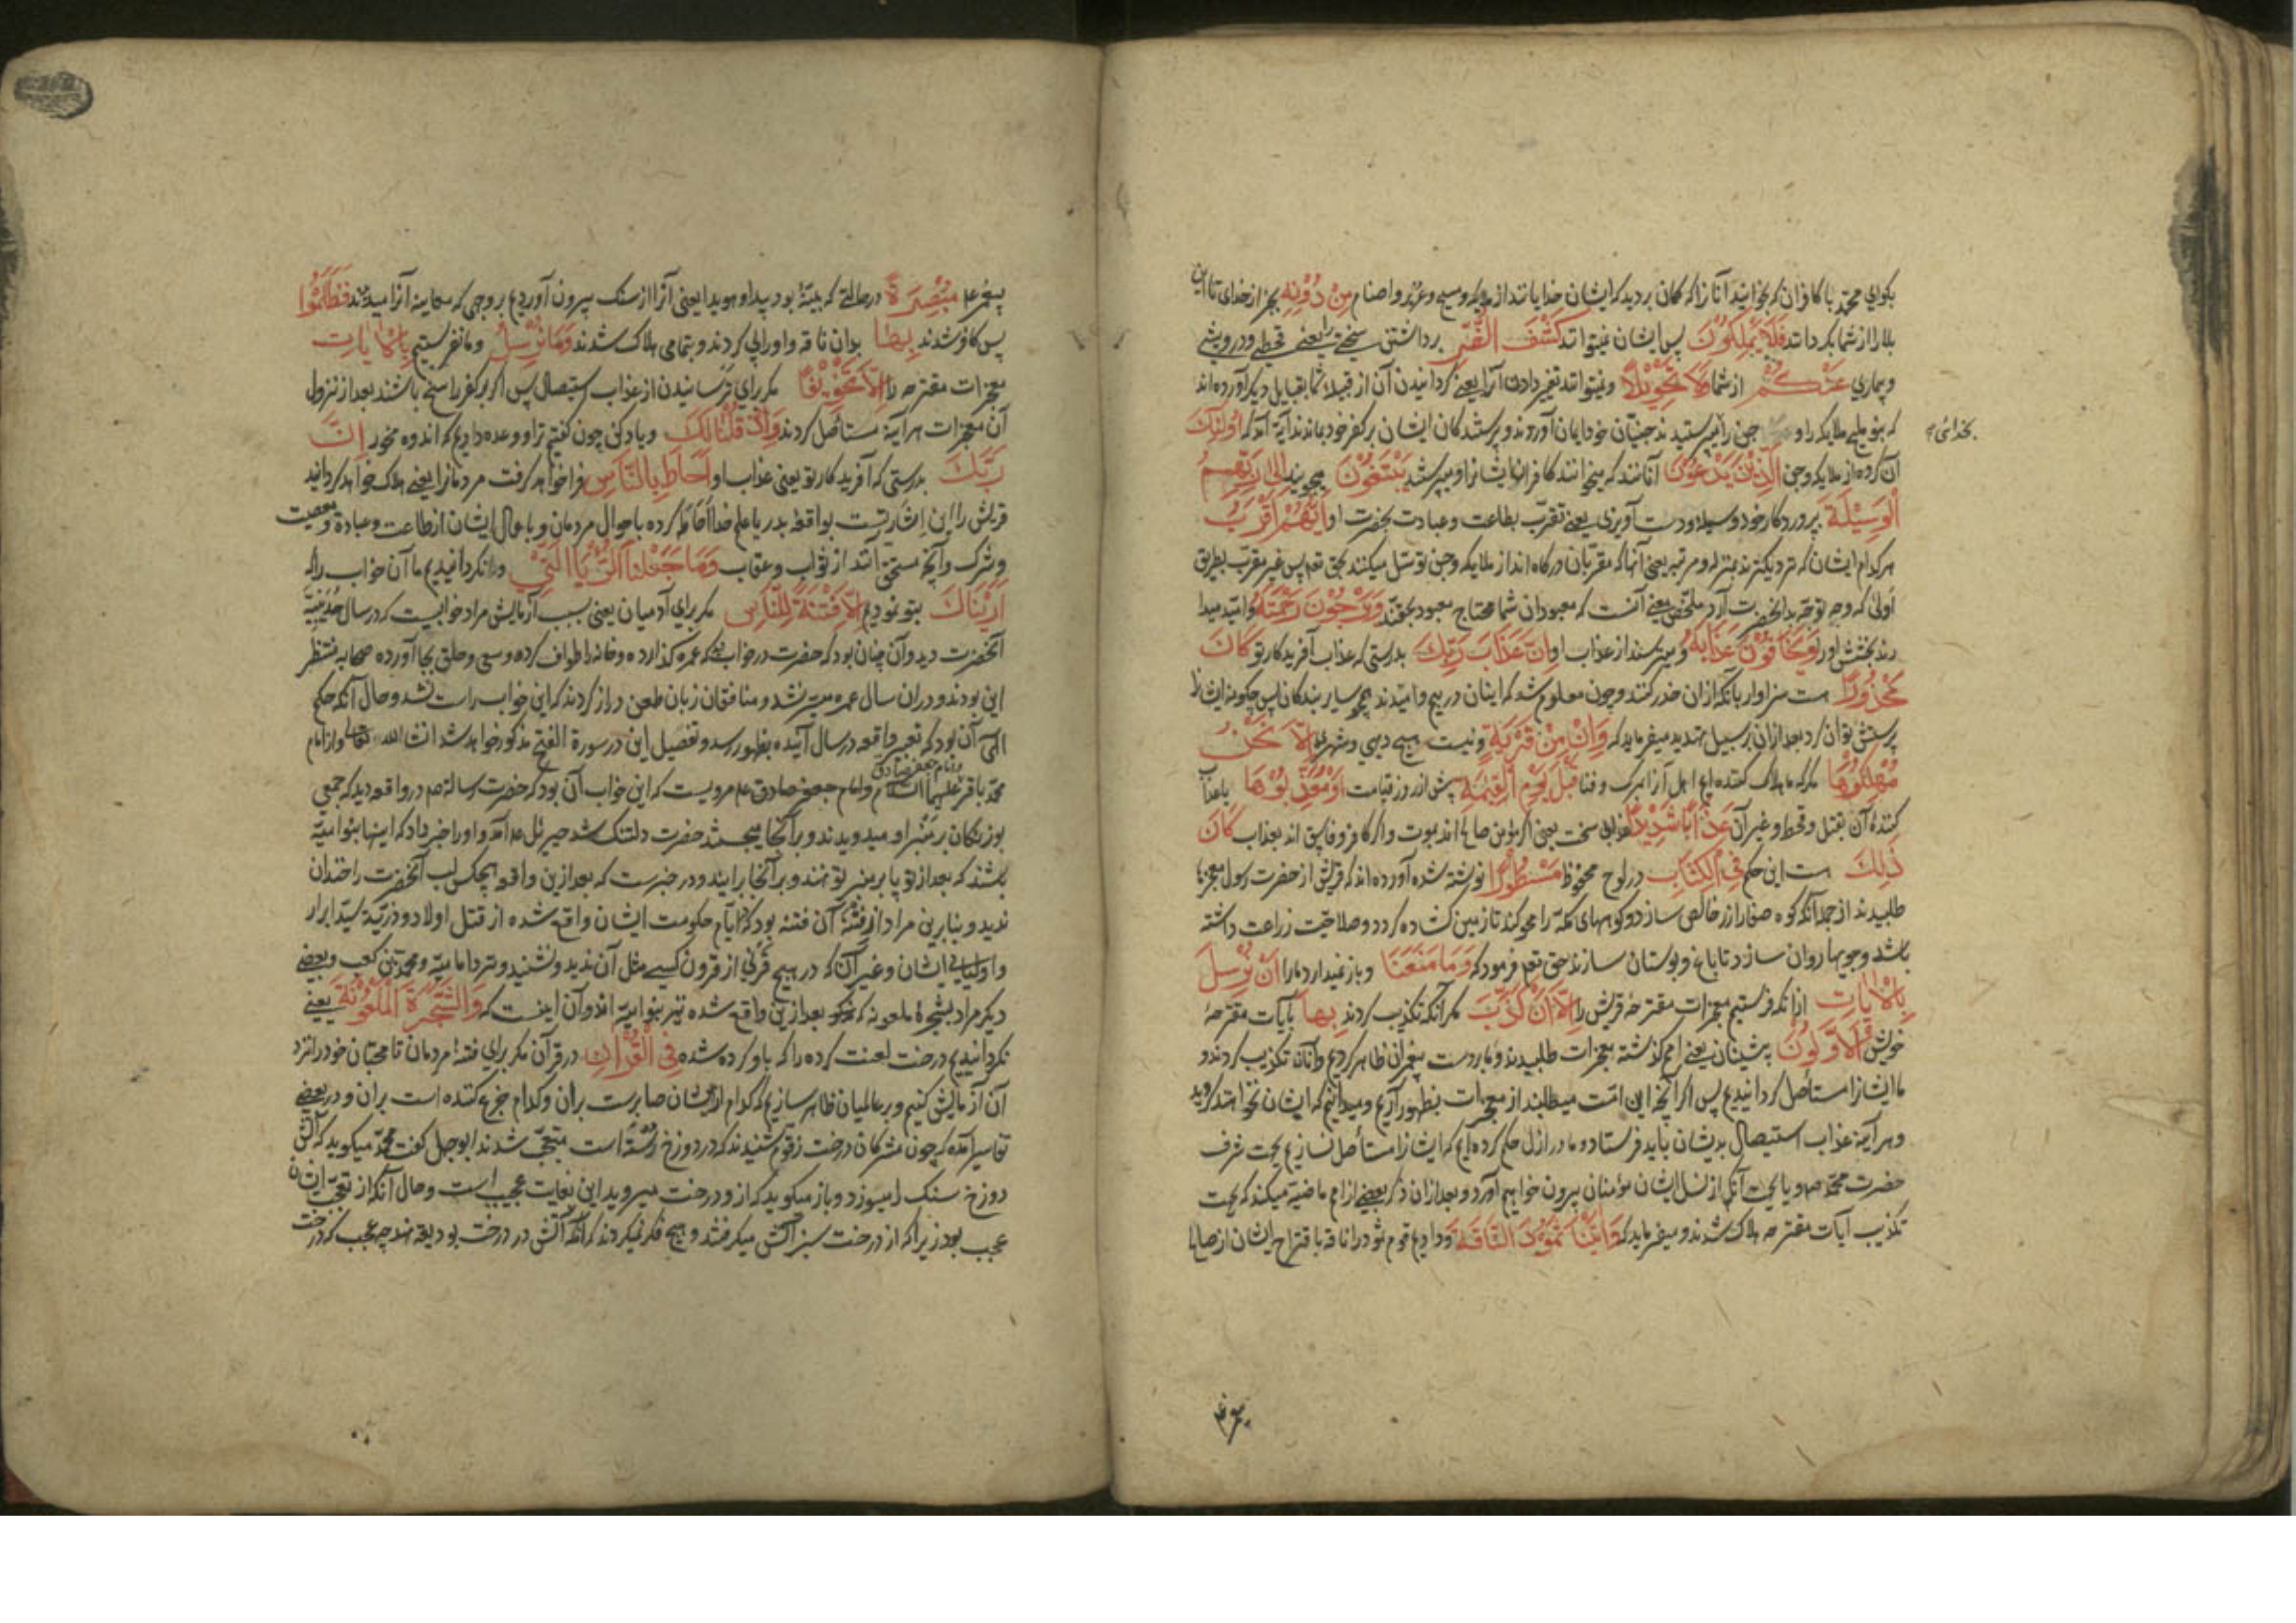 بکوای محمد با کافران که بخوانید آنانرا که کمان بردید که ایشان خدایانند از ملایکه و مسیح و عزیر و اصنام مِنْ دُوْنِهِ بجز از خدای تا این
بلا را از شما بکردانند فَلَا يَمْلِكُوْنَ پس ایشان نمیتوانند كَشْفَ الضُّرِّ برداشتن سختی را یعنی قحطی و درویشی
و بیماری عَنْكُمْ از شما وَلَا تَحْوِيْلًا و نمیتوانند تغیر دادن آنرا یعنی کردانیدن آن از قبیله شما بقبایل دیکر آورده اند
که بنو ملیح ملایکه را و جن را میپرستیدند جنیان خود ایمان آوردند و پرستندکان ایشان بر کفر خود بماندند آیة آمد که اُولٰئِكَ
بخدائی
آن کروه از ملایکه و جن الَّذِيْنَ يَدْعُوْنَ آنانند که میخوانند کافران ایشانرا و میپرستند يَبْتَغُوْنَ میجویند اِلٰى رَبِّهِمُ
الْوَسِيْلَةَ پروردکار خود وسیله و دست آویزی یعنی تقرّب بطاعت و عبادت بحضرت او اَيُّهُمْ اَقْرَبُ
هرکدام ایشان که نزدیکترند بمنزله و مرتبه یعنی آنها که مقربان درکاه اند از ملایکه و جن توسّل میکنند بحق تعم پس غیر مقرب بطریق
اولی که وجه توجه بدانحضرت آرد ملخّص معنی آنست که معبودان شما محتاج معبود بحقند وَيَرْجُوْنَ رَحْمَتَهُ و امید میدا
رند بخشش او را وَيَخَافُوْنَ عَذَابَهُ و میترسند از عذاب او اِنَّ عَذَابَ رَبِّكَ بدرستی که عذاب آفریدکار تو كَانَ
مَحْذُوْرًا هست سزاوار بآنکه ازان حذر کنند و چون معلوم شد که اینان در بیم و امیدند همچو سایر بندکان پس چکونه ایشانرا
پرستش توان کرد بعد ازان بر سبیل تهدید میفرماید که وَاِنْ مِنْ قَرْيَةٍ و نیست هیچ دیهی و شهری اِلَّا نَحْنُ
مُهْلِكُوْهَا مکر که ما هلاک کننده ایم اهل آنرا بمرک و فنا قَبْلَ يَوْمِ الْقِيٰمَةِ پیش از روز قیامت اَوْ مُعَذِّبُوْهَا یا عذاب
کننده آن بقتل و قحط و غیر آن عَذَابًا شَدِيْدًا عذابی سخت یعنی اکر مؤمن صالح اند بموت و اکر کافر و فاسق اند بعذاب كَانَ
ذٰلِكَ هست این حکم فِي الْكِتَابِ در لوح محفوظ مَسْطُوْرًا نوشته شده آورده اند که قریش از حضرت رسول معجزها
طلبیدند از جمله آنکه کوه صفا را زر خالص سازد و کوههای مکّه را محو کند تا زمین کشاده کردد و صلاحیت زراعت داشته
باشد و جویها روان سازد تا باغ و بوستان سازند حق تعم فرمود که وَمَا مَنَعَنَا و باز نمیدارد ما را اَنْ نُرْسِلَ
بِالْاٰيَاتِ از آنکه فرستیم معجزات مقترحهٔ قریش را اِلَّا اَنْ كَذَّبَ مکر آنکه تکذیب کردند بِهَا بآیات مقترحهٔ
خویش الْاَوَّلُوْنَ پیشینان یعنی امم کذشته معجزات طلبیدند و ما بر دست پیغمبران ظاهر کردیم و آنان تکذیب کردند و
ما ایشانرا مستأصل کردانیدیم پس اکر آنچه این امّت میطلبند از معجزات بظهور آریم و میدانیم که ایشان نخواهند کروید
و هر آینه عذاب استیصال بدیشان باید فرستاد و ما در ازل حکم کرده ایم که ایشانرا مستأصل نسازیم بجهت شرف
حضرت محمد صم و یا بجهت آنکه از نسل ایشان مؤمنان بیرون خواهیم آورد و بعد ازان ذکر بعضی از امم ماضیة میکند که بجهت
تکذیب آیات مقترحه هلاک شدند و میفرماید که وَاٰتَيْنَا ثَمُوْدَ النَّاقَةَ و دادیم قوم ثمود را ناقه باقتراح ایشان از صالح
پیغمبر
پیغمبر عم مُبْصِرَةً در حالتی که بینه بود پیدا و هویدا یعنی آنرا از سنک بیرون آوردیم بر وجهی که معاینه آنرا میدیدند فَظَلَمُوْا
پس کافر شدند بِهَا بدان ناقه و او را پی کردند و بتمامی هلاک شدند وَمَا نُرْسِلُ و ما نفرستیم بِالْاٰيَاتِ
معجزات مقترحه را اِلَّا تَخْوِيْفًا مکر برای ترسانیدن از عذاب استیصال پس اکر بر کفر راسخ باشند بعد از نزول
آن معجزات هر آینه مستأصل کردند وَاِذْ قُلْنَا لَكَ و یاد کن چون کفتیم ترا و وعده دادیم که اندوه مخور اِنَّ
رَبَّكَ بدرستی که آفریدکار تو یعنی عذاب او اَحَاطَ بِالنَّاسِ فرا خواهد کرفت مردمانرا یعنی هلاک خواهد کردانید
قریش را این اشارتست بواقعه بدر یا علم خدا احاطه کرده باحوال مردمان و باعمال ایشان از طاعت و عبادة و معصیت
و شرک و آنچه مستحق آنند از ثواب و عقاب وَمَا جَعَلْنَا الرُّؤْيَا الَّتِيْ و نکردانیدیم ما آن خواب را که
اَرَيْنَاكَ بتو نمودیم اِلَّا فِتْنَةً لِلنَّاسِ مکر برای آدمیان یعنی بسبب آزمایش مراد خوابیست که در سال حُدَیْبِیَّه
آنحضرت دید و آن چنان بود که حضرت در خواب دید که عمره کذارده و خانه را طواف کرده و سعی و حلق بجا آورده صحابه منتظر
این بودند و دران سال عمره میسر نشد و منافقان زبان طعن دراز کردند که این خواب راست نشد و حال آنکه حکم
الهی آن بود که تعبیر واقعه در سال آینده بظهور رسد و تفصیل این در سورة الفتح مذکور خواهد شد انشاالله تعالی و از امام
محمد باقر علیهما السلام و امام جعفر صادق عم مرویست که این خواب آن بود که حضرت رسالة صم در واقعه دید که جمعی
و امام جعفر صادق
بوزنکان بر منبر او میدویدند و بر آنجا میجستند حضرت دلتنک شد جبرئیل عم آمد و او را خبر داد که اینها بنو امیّه
باشند که بعد از تو پا بر منبر تو نهند و بر آنجا برایند و در خبرست که بعد ازین واقعه هیچکس لب آنحضرت را خندان
ندید و بنابرین مراد از فتنه آن فتنه بود که در ایام حکومت ایشان واقع شده از قتل اولاد و ذریّهٔ سیّد ابرار
و اولیای ایشان و غیر آن که در هیچ قرنی از قرون کسی مثل آن ندید و نشنید و نزد امامیّه و محمد بن کعب و بعضی
دیکر مراد بشجرهٔ ملعونه که مذکور بعد ازین واقع شده نیز بنو امیّه اند و آن اینست که وَالشَّجَرَةَ الْمَلْعُوْنَةَ یعنی
نکردانیدیم درخت لعنت کرده را که یاد کرده شده فِي الْقُرْاٰنِ در قرآن مکر برای فتنهٔ مردمان تا محبان خود را نزد
آن آزمایش کنیم و بر عالمیان ظاهر سازیم که کدام از ایشان صابرست بران و کدام جزع کننده است بران و در بعضی
تفاسیر آمده که چون مشرکان درخت زقّوم شنیدند که در دوزخ رسته است متعجّب شدند ابوجهل کفت محمد میکوید که آتش
دوزخ سنک را میسوزد و باز میکوید که از و درخت میروید این بغایت عجیب است و حال آنکه از تعجّب ایشان
عجب بود زیرا که از درخت سبز آتش میکرفتند و هیچ فکر نمیکردند که آنکه آتش در درخت بودیعه نهد چه عجب که درخت